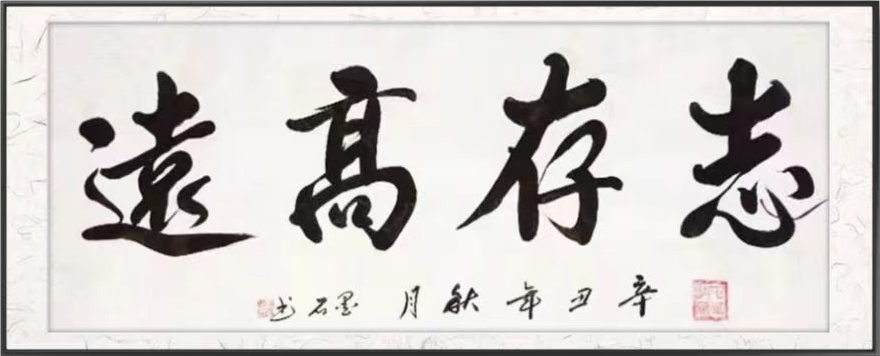 志存高遠
辛丑年秋月墨石书